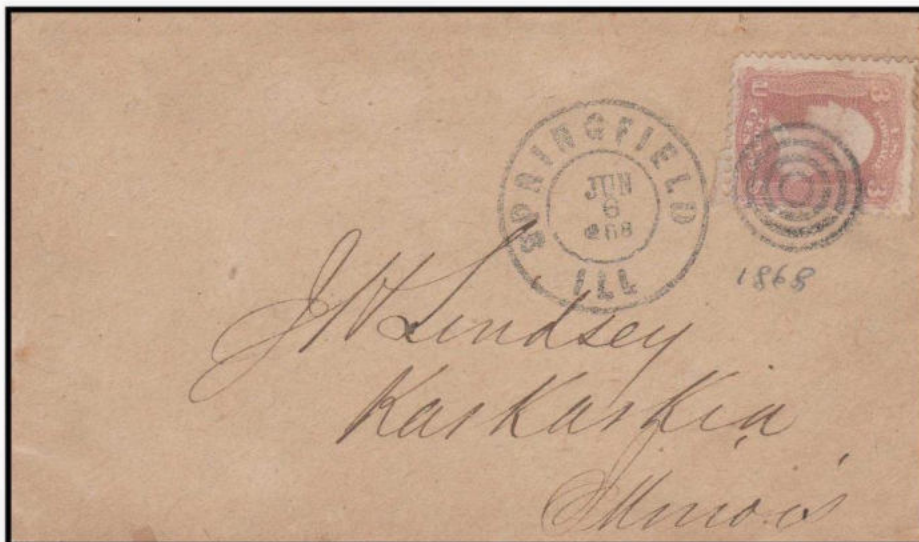 SPRINGFIELD
JUN
6
ILL
U 3
3
1868
J W Lindsey
Kaskaskia
Illinois